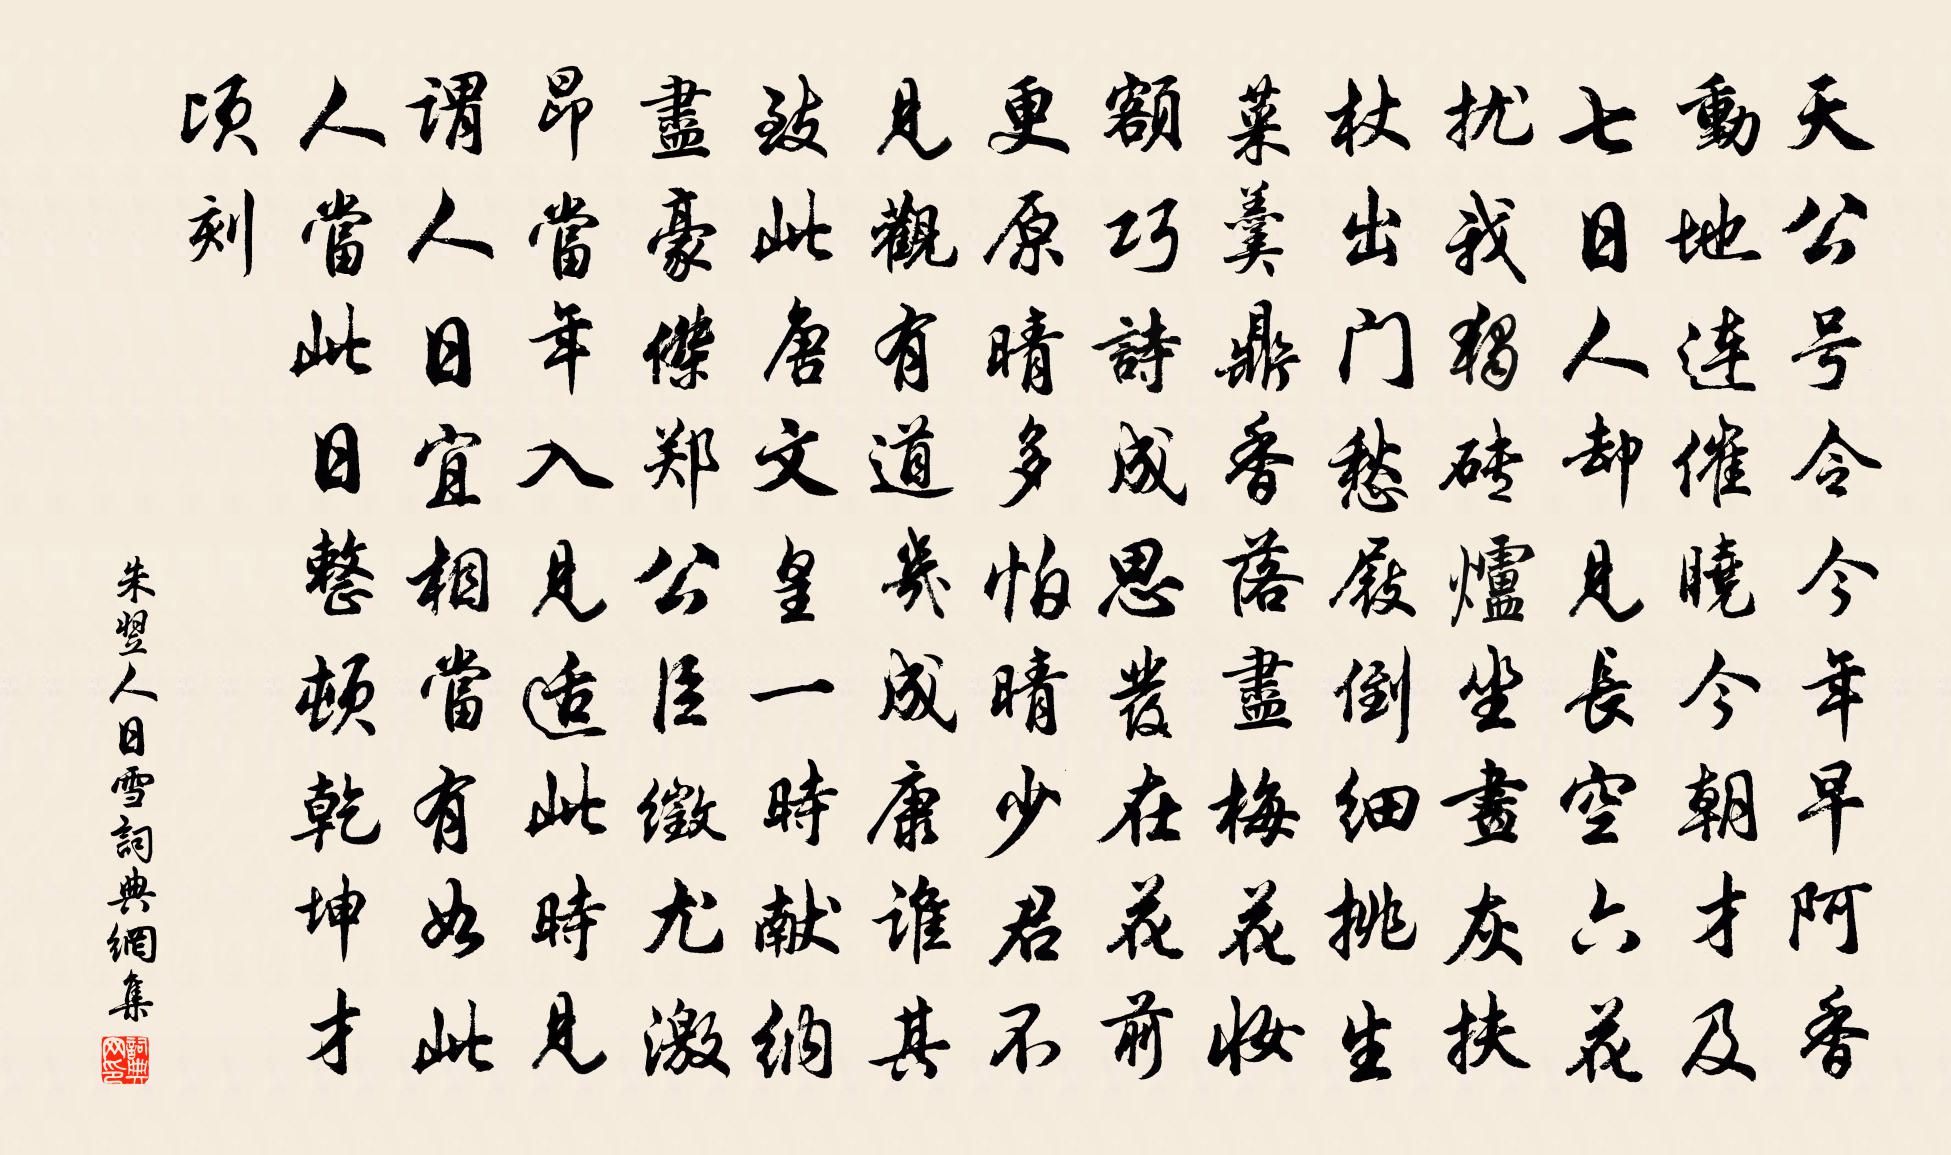 天公号令今年早阿香
動地连催曉今朝才及
七日人却見長空六花
扰我獨磚爐坐畫灰扶
杖出门愁屐倒细挑生
菜羹鼎香落盡梅花妝
額巧詩成思發在花前
更原晴多怕晴少君不
見觀有道幾成康谁其
致此唐文皇一時献纳
盡豪傑郑公臣徵尤激
昂當年入見适此時見
谓人日宜相當有如此
人當此日整頓乾坤才
顷刻
朱翌人日雪詞典網集
詞典网印